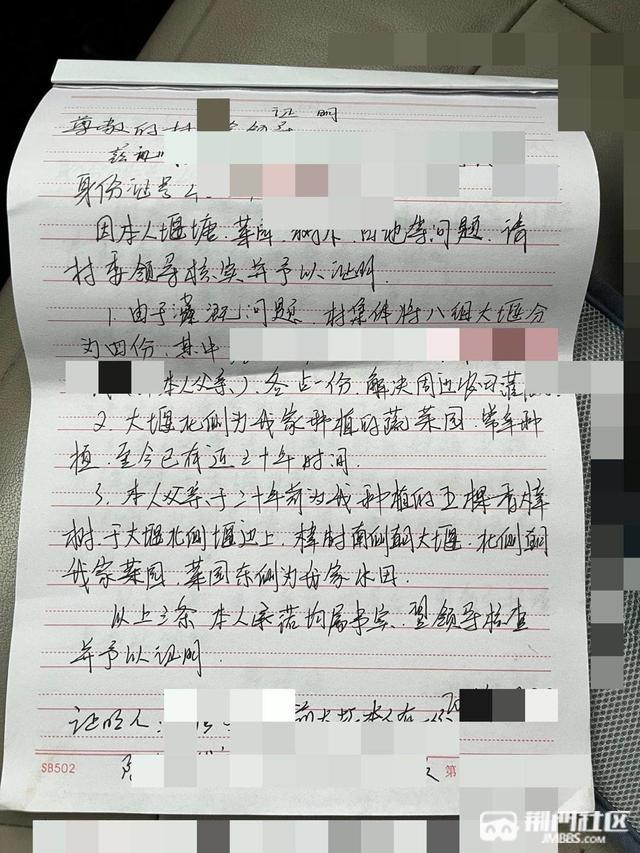 证明
尊敬的村
兹有
身份证号4
因本人堰塘、菜园、树木、田地等问题、请
村委领导核实并予以证明.
1.由于灌溉问题、村集体将八组大堰分
为四份、其中
本人父亲)、各占一份、解决周边农田灌
2.大堰北侧为我家种植的蔬菜园、常年种
植、至今已有近三十年时间.
3.本人父亲于二十年前为我种植的五棵香樟
树于大堰北侧堰边上、樟树南侧朝大堰、北侧朝
我家菜园、菜园东侧为我家水田.
以上三条本人承诺均属事实、望领导核查
并予以证明.
证明人:
SB502
第
荆门社区
JMBBS.COM